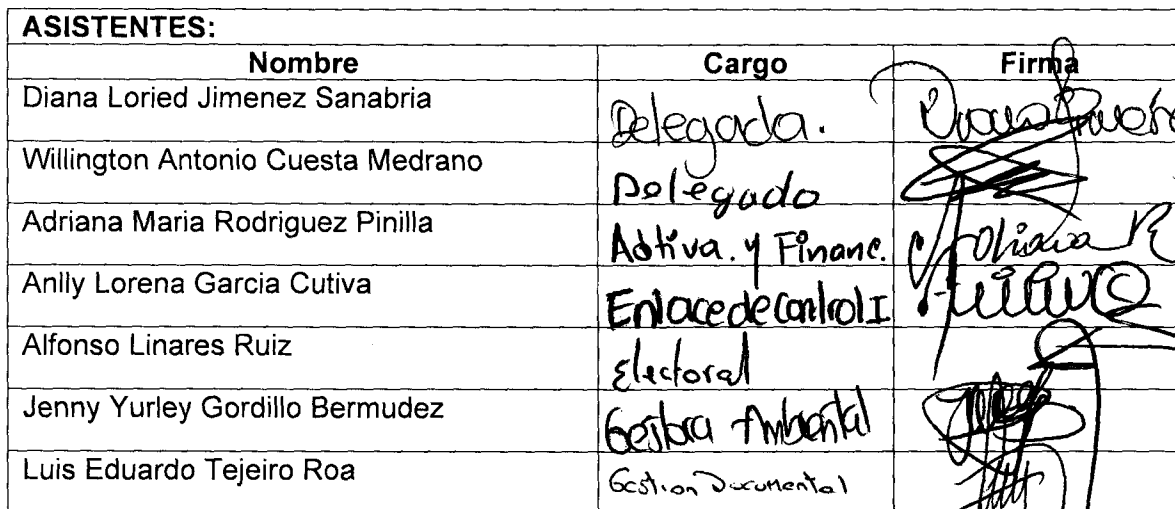 ASISTENTES:
Nombre Cargo Firma
Diana Loried Jimenez Sanabria Delegada.
Willington Antonio Cuesta Medrano Delegado
Adriana Maria Rodriguez Pinilla Adtiva. y Financ.
Anlly Lorena Garcia Cutiva Enlace de Control I
Alfonso Linares Ruiz Electoral
Jenny Yurley Gordillo Bermudez Gestora Ambiental
Luis Eduardo Tejeiro Roa Gestion Documental